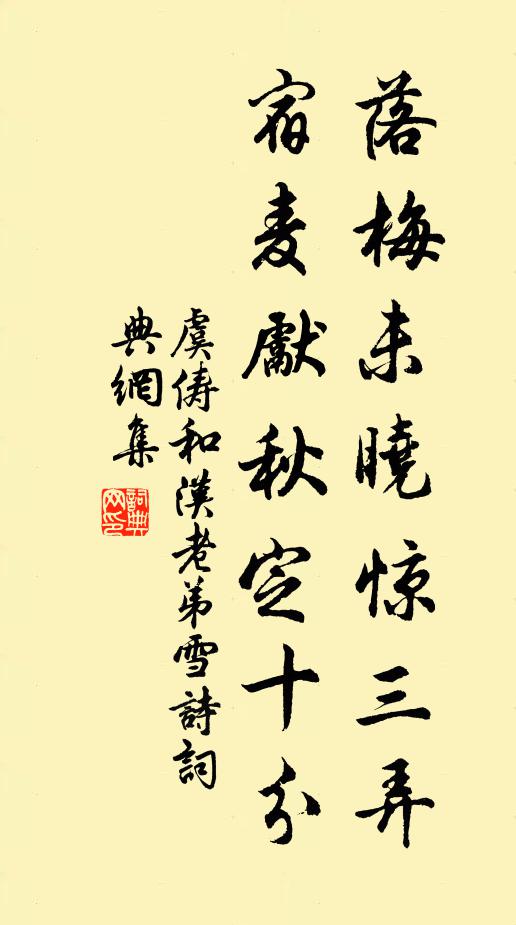 落梅未曉惊三弄
宿麦獻秋定十分
虞俦和漢老弟雪詩詞
典網集
詞典网印